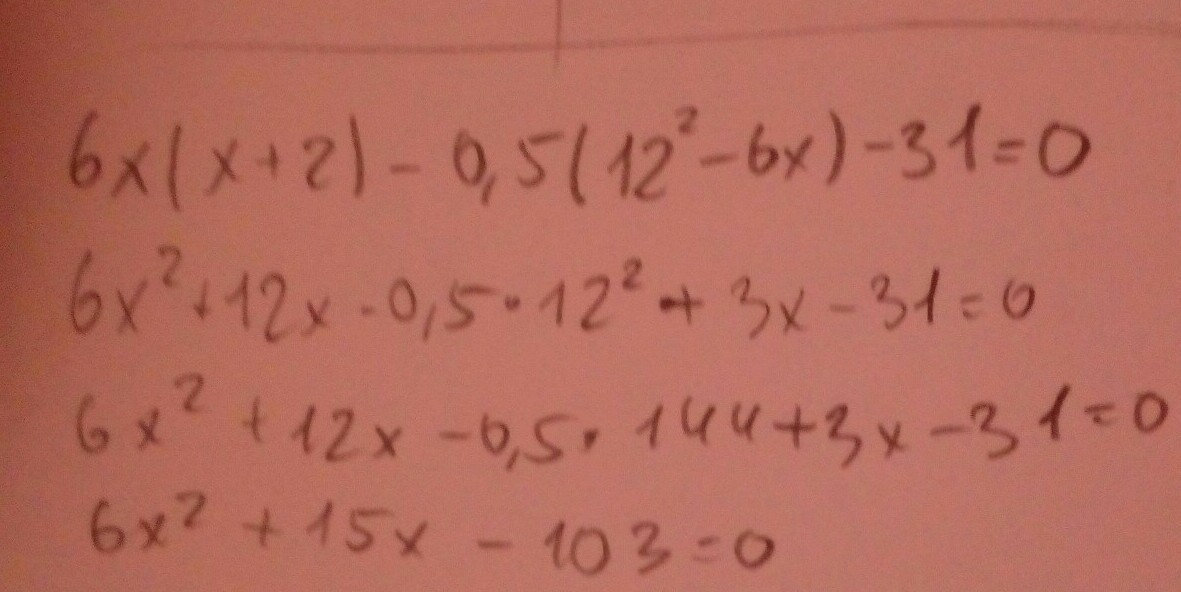 6x(x+2)-0,5(12²-6x)-31=0
6x²+12x-0,5·12²+3x-31=0
6x²+12x-0,5·144+3x-31=0
6x²+15x-103=0